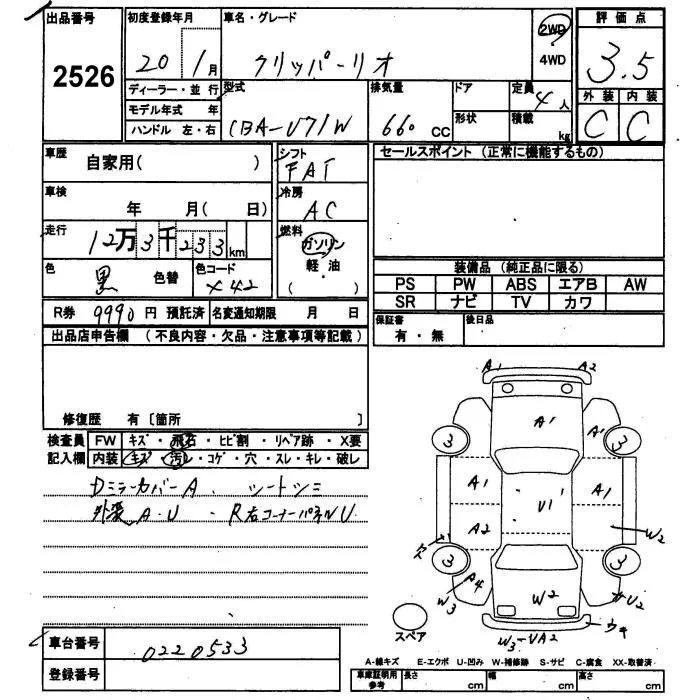 出品番号 初度登録年月 車名・グレード 2WD 評価点
2526 20 1月 クリッパーリオ 4WD 3.5
ディーラー・並行 型式 排気量 ドア 定員 4人 外装 内装
モデル年式 年 CBA-U71W 660 CC 形状 積載 kg C C
ハンドル 左・右
車歴 自家用( ) シフト FAT セールスポイント (正常に機能するもの)
車検 年 月( 日) 冷房 AC
走行 12万3千233km 燃料 ガソリン
軽・油
( )
色 黒 色替 色コード X42 装備品 (純正品に限る)
PS PW ABS エアB AW
SR ナビ TV カワ
R券 9990円 預託済 名変通知期限 月 日 保証書 有・無 後日品
出品店申告欄 (不良内容・欠品・注意事項等記載)
修復歴 有 〔箇所 〕
検査員 FW キズ・飛石・ヒビ割・リペア跡・X要
記入欄 内装 キズ・汚レ・コゲ・穴・スレ・キレ・破レ
Dミラーカバー A シートシミ
外装 A・U ・R右コーナーパネルU
A1 A2
A1 A1
3 3
A1 U1 A1
A2 W2
3 3
A4 W3 W2 U2
W3-UA2
スペア
車台番号 0220533
登録番号
A-線キズ E-エクボ U-凹み W-補修跡 S-サビ C-腐食 XX-取替済
車庫証明用参考 長さ cm 幅 cm 高さ cm